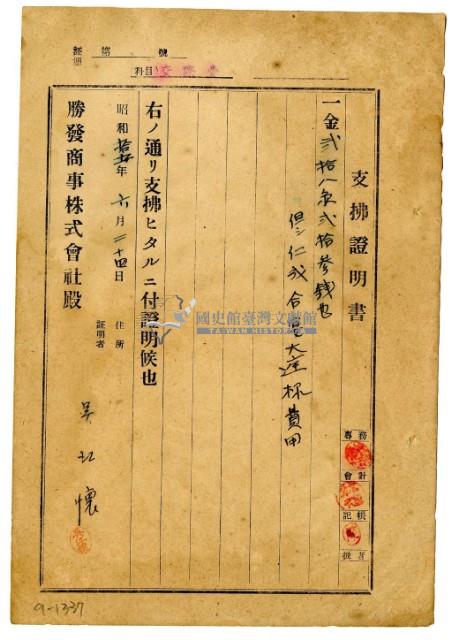 証憑 第 號
科目
支拂證明書
一金貳拾八円貳拾參錢也
但シ仁成合會大運杯費用
右ノ通リ支拂ヒタルニ付證明候也
昭和 年六月二十四日
住所
証明者
吳江懷
勝發商事株式會社殿
專務
會計
記帳
扱者
國史館臺灣文獻館
TAIWAN HISTORICA
9-1337